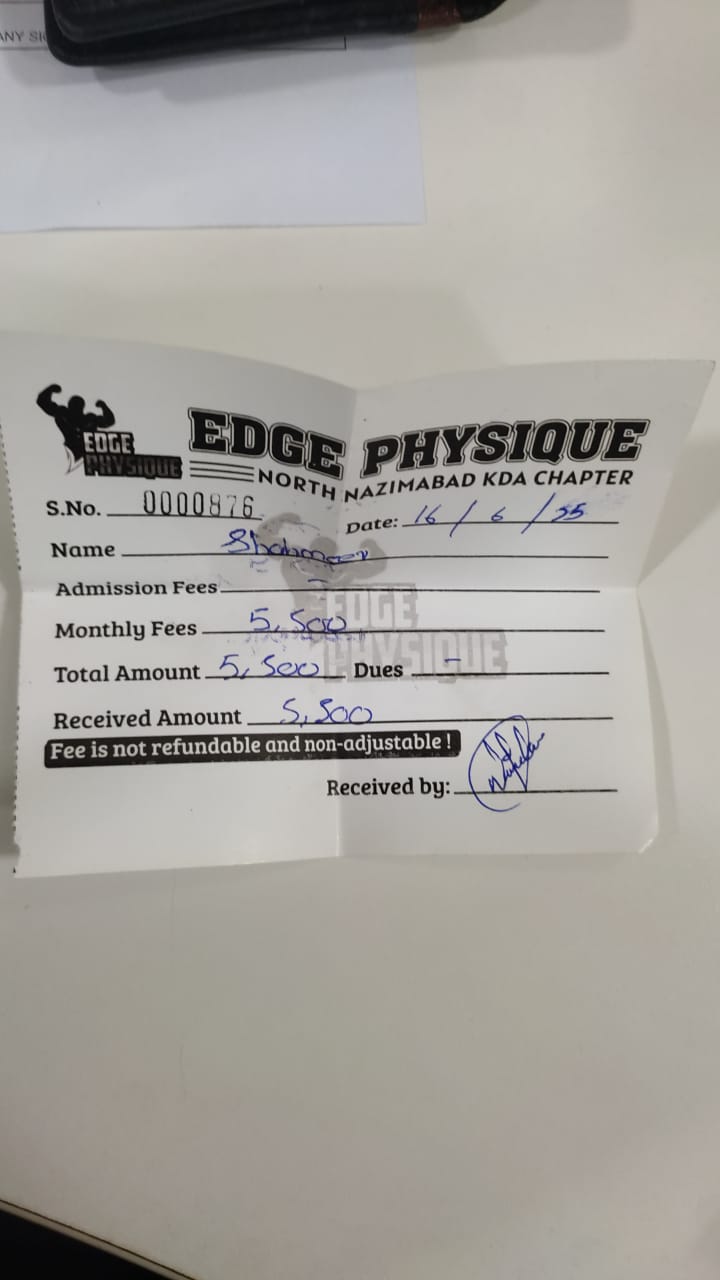 ANY
EDGE
PHYSIQUE
EDGE PHYSIQUE
NORTH NAZIMABAD KDA CHAPTER
S.No. 0000876
Date: 16 / 6 / 25
Name Shahmeer
Admission Fees -
Monthly Fees 5,500
EDGE
PHYSIQUE
Total Amount 5,500 Dues -
Received Amount 5,500
Fee is not refundable and non-adjustable !
Received by: